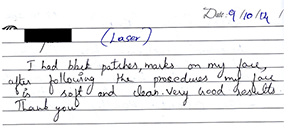 Date: 9/10/14
(Laser)
I had black patches, marks on my face,
after following the procedures my face
is soft and clear. Very Good results
Thank you